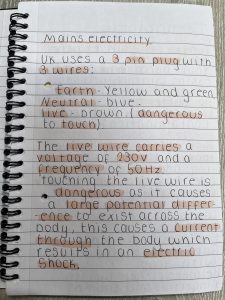 Mains electricity
UK uses a 3 pin plug with
3 wires:
Earth - yellow and green
Neutral - blue.
live - brown (dangerous
to touch)
The live wire carries a
voltage of 230v and a
frequency of 50Hz.
touching the live wire is
dangerous as it causes
a large potential differ-
ence to exist across the
body, this causes a current
through the body which
results in an electric
shock.